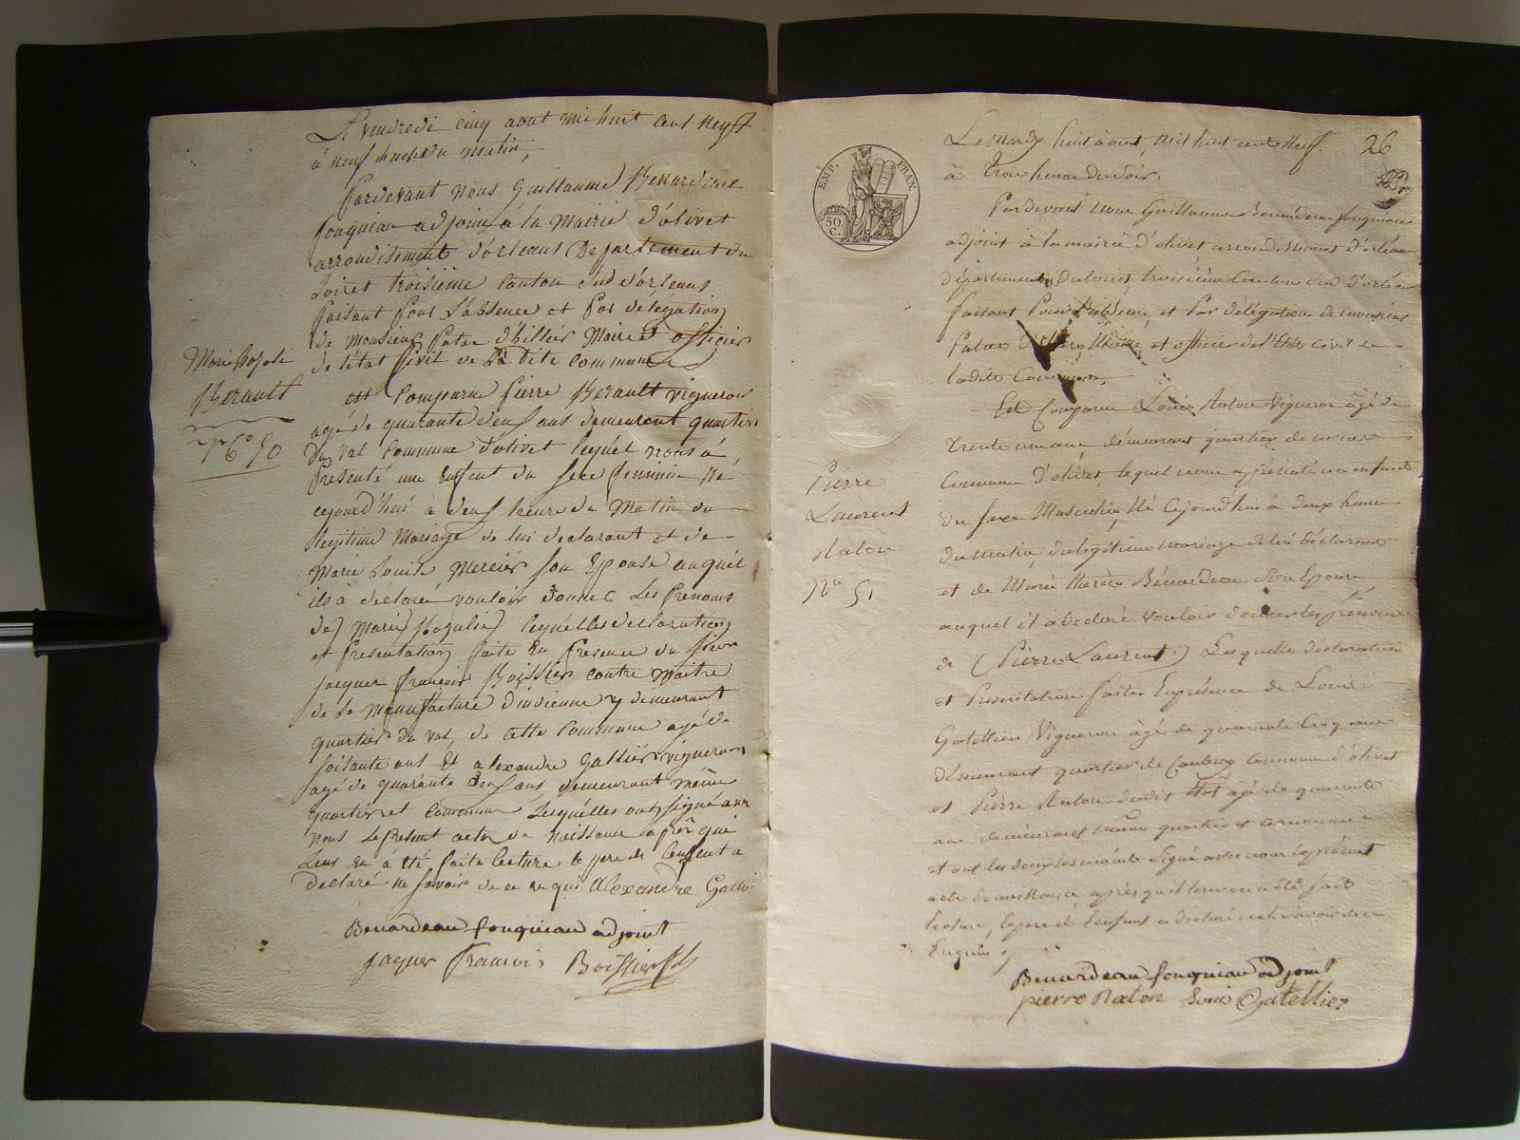 Le vendredi cinq aout mil huit cent neuf
à neuf heure du matin,
Pardevant nous Guillaume Benardeau
fouquiau adjoint à la Mairie d'olivet
arrondisement d'orleans Departement du
Loiret troisieme canton sud d'orleans
faisant pour L'absence et par delegation
de monsieur Maire et officier
de l'état civil de la dite commune
est comparu pierre Berault vigneron
agé de quarante deuf ans demeurant quartier
du val commune d'olivet lequél nous à
presenté une enfent du sexe feminin né
cejourd'hui à deuf heure du matin du
legitime mariage de lui declarant et de
Marie Louise Mercier son Epouse auquél
ils à declaré vouloir donner Les Prenoms
de) Marie Rozalie) lesquélles declaration
et presentation faite En presence du sieur
jacques françois Boissier contre maitre
de la manufacture d'indienne y demeurant
quartier du val, de cette commune agé de
soisante ans Et alexandre Gallier vigneron
agé de quarante deuf ans demeurant même
quartier et commune Lesquélles ont signé avec
nous Le present acte de Naissance après que
Leus en à été faite lecture le pere de l'enfent a
declaré ne savoir de ce enquis Alexandre
Benardeau fouquiau adjoint
jaques francois Boissier
Marie Rozali
Berault
N° 50
26
EMP. FRAN.
50 C.
Le Mardy huit aout, mil huit cent Neuf.
à trois heure du soir,
Pardevant nous Guillaume Benardeau fouquiau
adjoint à la mairie d'olivet arrondissement d'orléans
département du loiret troisième canton sud d'orléans
faisant Pour l'absence, et Par délégation de monsieur
Maire, et officier de l'état civil de
ladite commune,
Est Comparu Louis Ratou Vigneron âgé de
trente un ans démeurant quartier de
Commune d'olivet, lequel nous a présenté un enfant
du sexe Masculin Né Cejourd'hui à deux heure
du matin, du légitime mariage de lui déclarant
et de Marie thérèse Bénardeau Son Epouse
auquel il à déclaré vouloir donner les prénoms
de (Pierre Laurent) Lesquelle déclaration
et Présentation faites En présence de Louis
Gatellier Vigneron âgé de quarante Cinq ans
démeurant quartier de Commune d'olivet
et Pierre Ratou âgé de quarante
ans demeurant même quartier et commune
et ont les deux témoins Signé avec nous le présent
acte de naissance après qu'il leur en a été fait
lecture, le père de l'enfant a déclaré ne le savoir de ce
Enquis,
Benardeau fouquiau adjoint
pierre Ratou Louis Gatellier
Pierre
Laurent
Ratou
N° 51